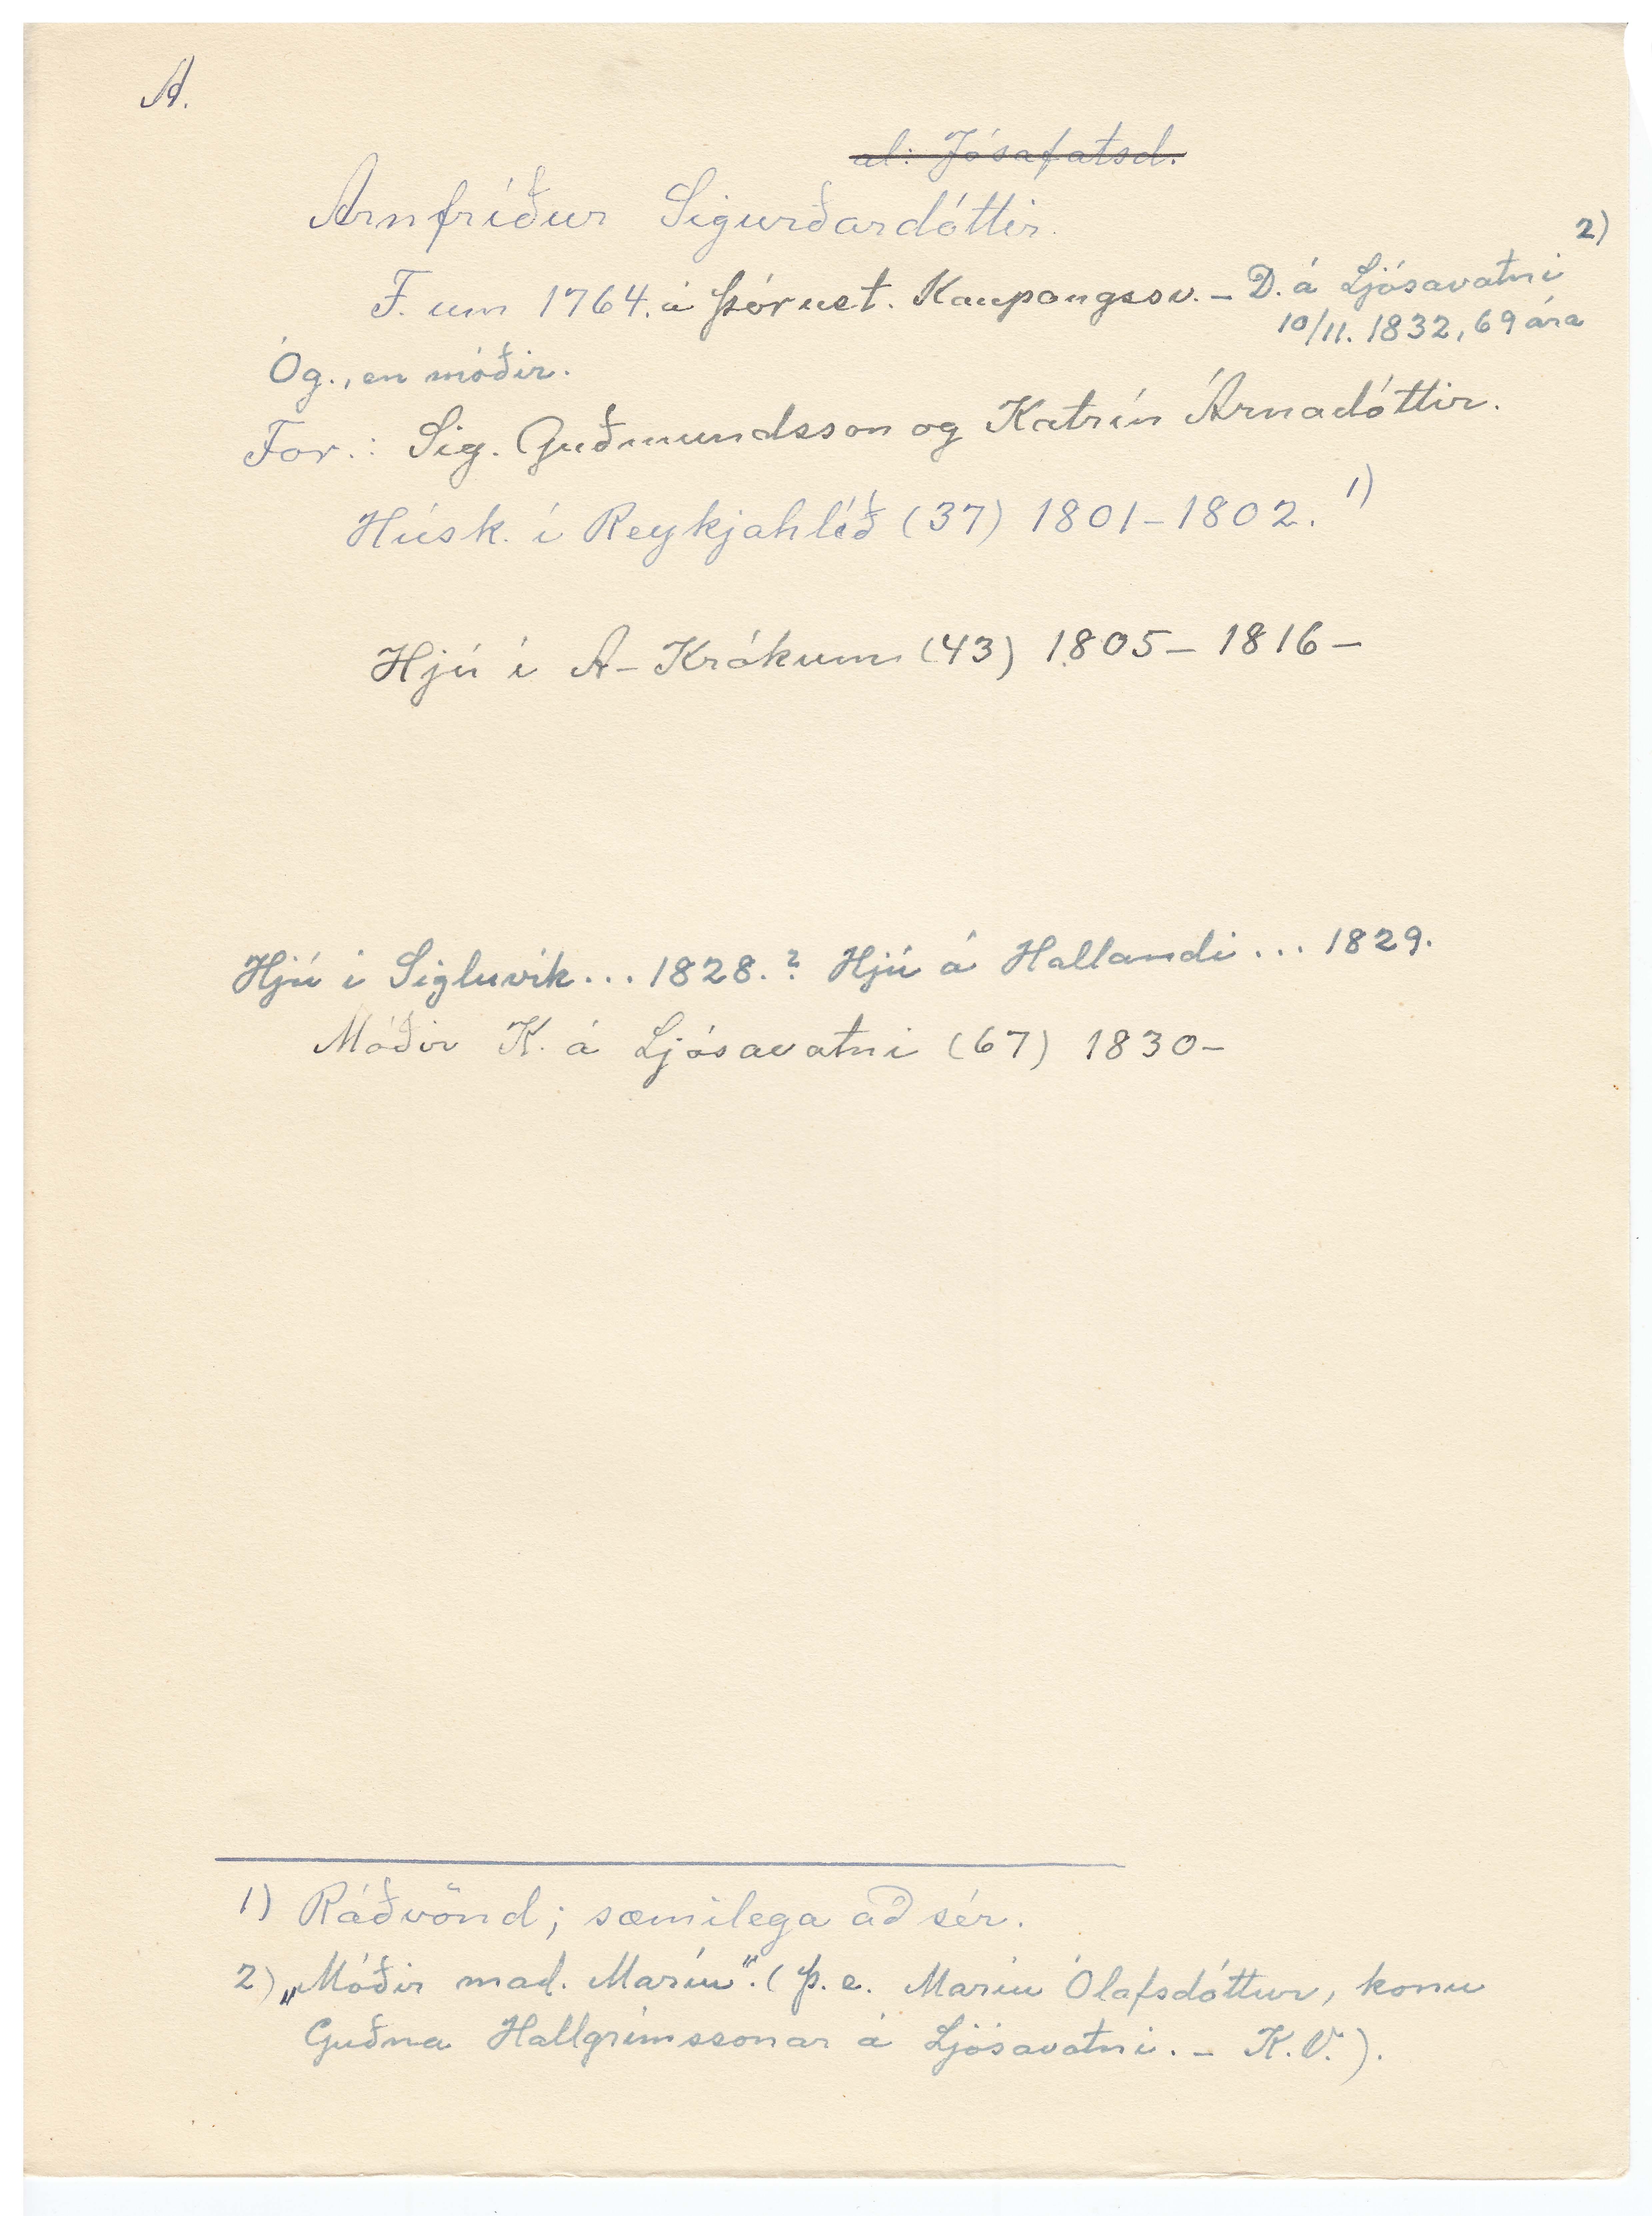 A.
al: Jósafatsd.
Arnfríður Sigurðardóttir.
2)
F. um 1764. á Þórust. Kaupangssv. – D. á Ljósavatni
10/11. 1832, 69 ára
Óg., en móðir.
For.: Sig. Guðmundsson og Katrín Árnadóttir.
Húsk. í Reykjahlíð (37) 1801–1802. 1)
Hjú í A-Krókum (43) 1805– 1816–
Hjú í Sigluvík... 1828.? Hjú á Hallandi... 1829.
Móðir K. á Ljósavatni (67) 1830–
1) Ráðvönd; sæmilega að sér.
2) „Móðir mad. Maríu“. (þ.e. Maríu Ólafsdóttur, konu
Guðna Hallgrímssonar á Ljósavatni. – K.V.).